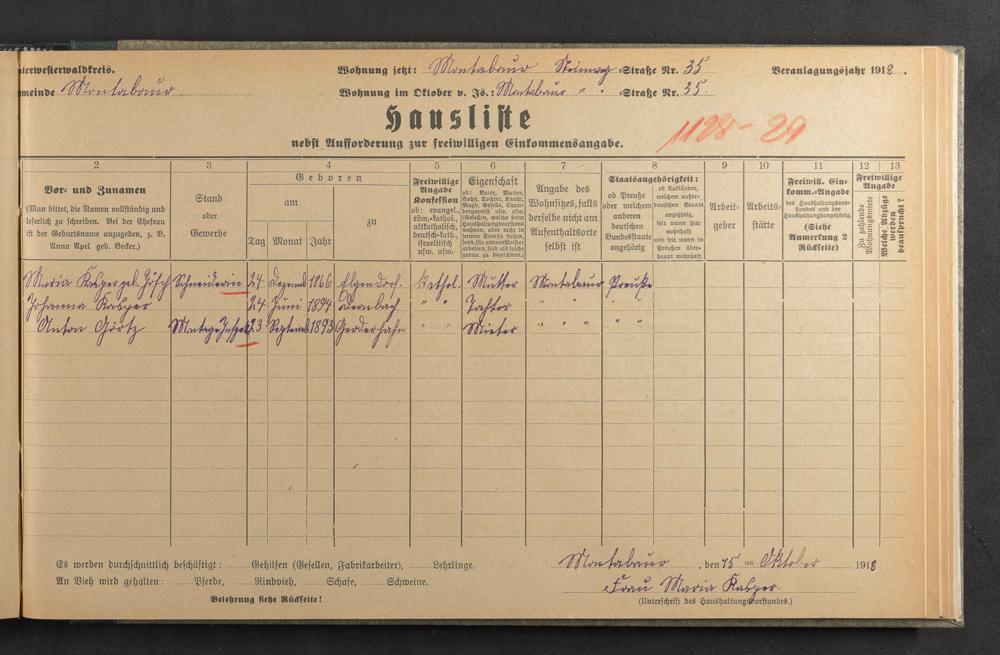 Unterwesterwaldkreis.
Wohnung jetzt: Montabaur Steinweg =Straße Nr. 35
Veranlagungsjahr 1918.
meinde Montabaur
Wohnung im Oktober v. Js.: Montabaur " " =Straße Nr. 35.
Hausliste
1128-29
nebst Aufforderung zur freiwilligen Einkommensangabe.
2 3 4 5 6 7 8 9 10 11 12 13
Vor- und Zunamen
(Man bittet, die Namen vollständig und leserlich zu schreiben. Bei der Ehefrau ist der Geburtsname anzugeben, z. B. Anna Apel geb. Becker.)
Stand oder Gewerbe
Geboren
am
zu
Tag Monat Jahr
Freiwillige Angabe Konfession
ob: evangel., röm.=kathol., altkatholisch, deutsch=kath., israelitisch usw. usw.
Eigenschaft
Angabe des Wohnsitzes, falls derselbe nicht am Aufenthaltsorte selbst ist
Staatsangehörigkeit:
ob Preuße oder welchem anderen deutschen Bundesstaate angehörig
ob Ausländer, welchem außerdeutschen Staate angehörig, seit wann hier wohnhaft und seit wann in Preußen überhaupt wohnhaft
Arbeitgeber
Arbeitsstätte
Freiwill. Einkomm.=Angabe
des Haushaltungsvorstandes und der Haushaltungsangehörig.
(Siehe Anmerkung 2 Rückseite)
Freiwillige Angabe
Zu zahlende Wohnungsmiete
Welche Abzüge werden beansprucht?
Maria Kasper geb. Schneiderin 27 Dezemb 1866 Elgendorf. Kathol. Mutter Montabaur Preuße
Johanna Kasper 24 Juni 1894 " " Tochter
Anton Görtz 23 Septemb 1893 " " Mieter " " " " "
Es werden durchschnittlich beschäftigt: Gehilfen (Gesellen, Fabrikarbeiter), Lehrlinge.
An Vieh wird gehalten: Pferde, Rindvieh, Schafe, Schweine.
Belehrung siehe Rückseite!
Montabaur, den 15 ten Oktober 1918
Frau Maria Kasper.
(Unterschrift des Haushaltungsvorstandes.)